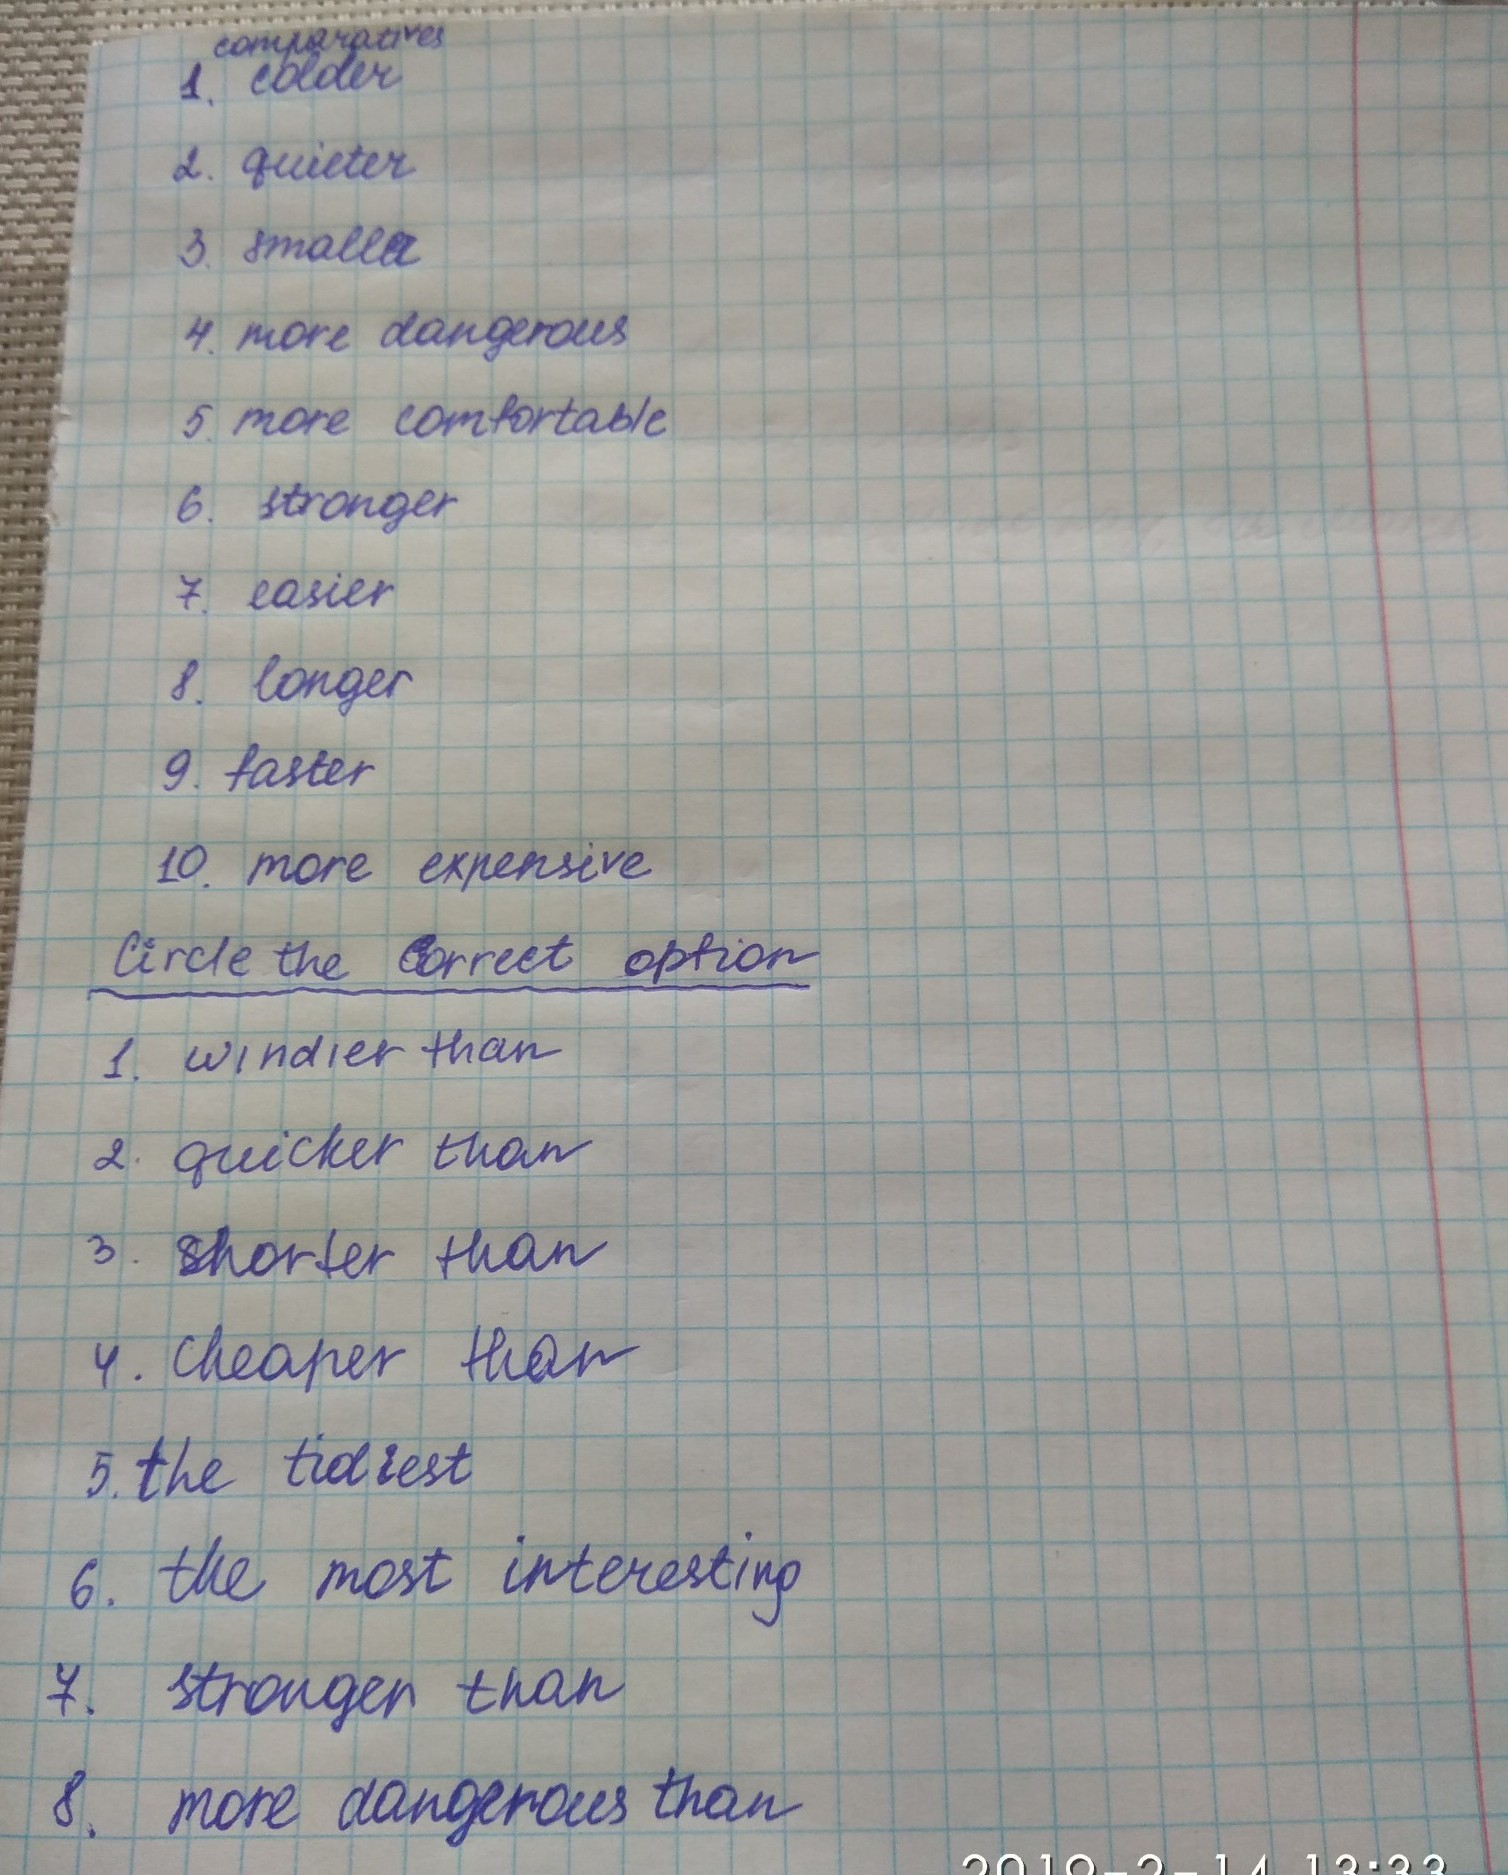 comparatives
1. colder
2. quieter
3. smaller
4. more dangerous
5. more comfortable
6. stronger
7. easier
8. longer
9. faster
10. more expensive
Circle the Correct option
1. windier than
2. quicker than
3. shorter than
4. cheaper than
5. the tidiest
6. the most interesting
7. stronger than
8. more dangerous than
2019-2-14 13:33